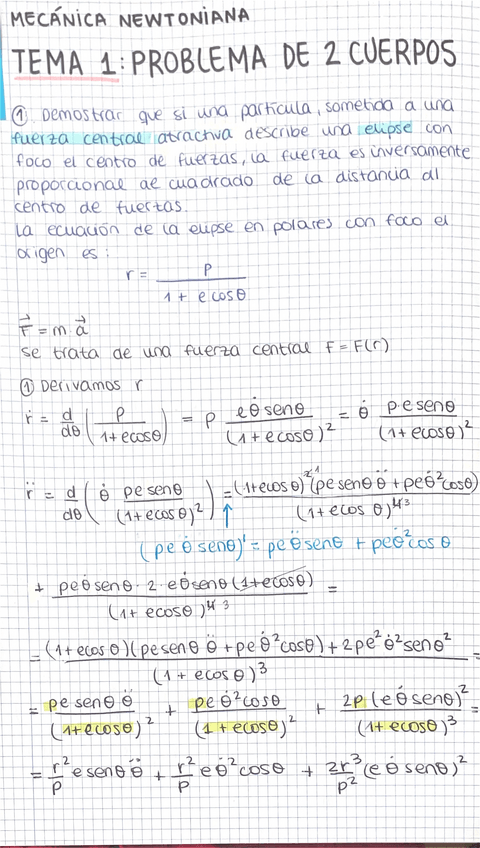 MECÁNICA NEWTONIANA
TEMA 1: PROBLEMA DE 2 CUERPOS
① Demostrar que si una partícula, sometida a una
fuerza central atractiva describe una elipse con
foco el centro de fuerzas, la fuerza es inversamente
proporcional al cuadrado de la distancia al
centro de fuerzas.
La ecuación de la elipse en polares con foco el
origen es:
r = p / (1 + e cosθ)
F⃗ = m·a⃗
Se trata de una fuerza central F = F(r)
① Derivamos r
ṙ = d/dθ (p / (1+ecosθ)) = p eθ̇senθ / (1+ecosθ)² = θ̇ p·esenθ / (1+ecosθ)²
r̈ = d/dθ (θ̇ pesenθ / (1+ecosθ)²) = (1+ecosθ)²¹(pesenθθ̈ + peθ̇²cosθ) / (1+ecosθ)⁴³
(peθ̇senθ)' = peθ̈senθ + peθ̇²cosθ
+ peθ̇senθ·2·eθ̇senθ(1+ecosθ) / (1+ecosθ)⁴³ =
= (1+ecosθ)(pesenθθ̈ + peθ̇²cosθ) + 2pe²θ̇²senθ² / (1+ecosθ)³ =
= pesenθθ̈ / (1+ecosθ)² + peθ̇²cosθ / (1+ecosθ)² + 2p(eθ̇senθ)² / (1+ecosθ)³ =
= r²/p esenθθ̈ + r²/p eθ̇²cosθ + 2r³/p² (eθ̇senθ)²